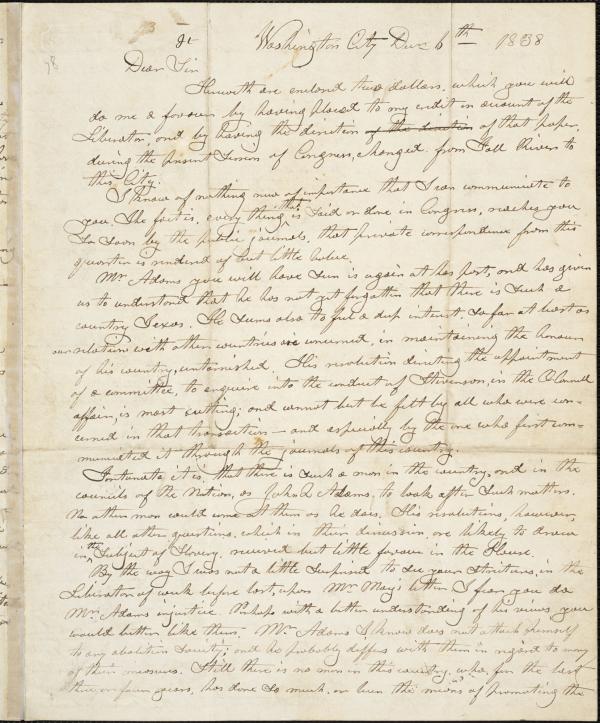 Washington City Dec 6th 1838
Dear Sir
Herewith are enclosed two dollars, which you will
do me a favour by having placed to my credit in account of the
Liberator, and by having the direction of the direction of that paper,
during the present Session of Congress, changed from Fall River to
this City.
I know of nothing new of importance that I can communicate to
you. The fact is, every thing that is said or done in Congress, reaches you
so soon by the public journals, that private correspondence from this
quarter is rendered of but little value.
Mr. Adams you will have seen is again at his post, and has given
us to understand that he has not yet forgotten that there is such a
country Texas. He seems also to feel a deep interest so far at least as
our relations with other countries are concerned, in maintaining the honour
of his country, untarnished. His resolution directing the appointment
of a committee, to enquire into the conduct of Stevenson, in the O'Connell
affair, is most cutting; and cannot but be felt by all who were con-
cerned in that transaction – and especially by the one who first com-
municated it through the journals of this country.
Fortunate it is, that there is such a man in the country, and in the
councils of the Nation, as John Q Adams, to look after such matters.
No other man would come at them as he does. His resolutions, however,
like all other questions, which in their discussion, are likely to draw
in the subject of Slavery, received but little favour in the House.
By the way I was not a little surprised to see your strictures, in the
Liberator of week before last, upon Mr May's letter. I fear you do
Mr. Adams injustice. Perhaps with a better understanding of his views you
would better like them. Mr. Adams I know does not attach himself
to any abolition Society; and he probably differs with them in regard to many
of their measures. Still there is no man in this country, who, for the last
three or four years, has done so much, or been the means of promoting the